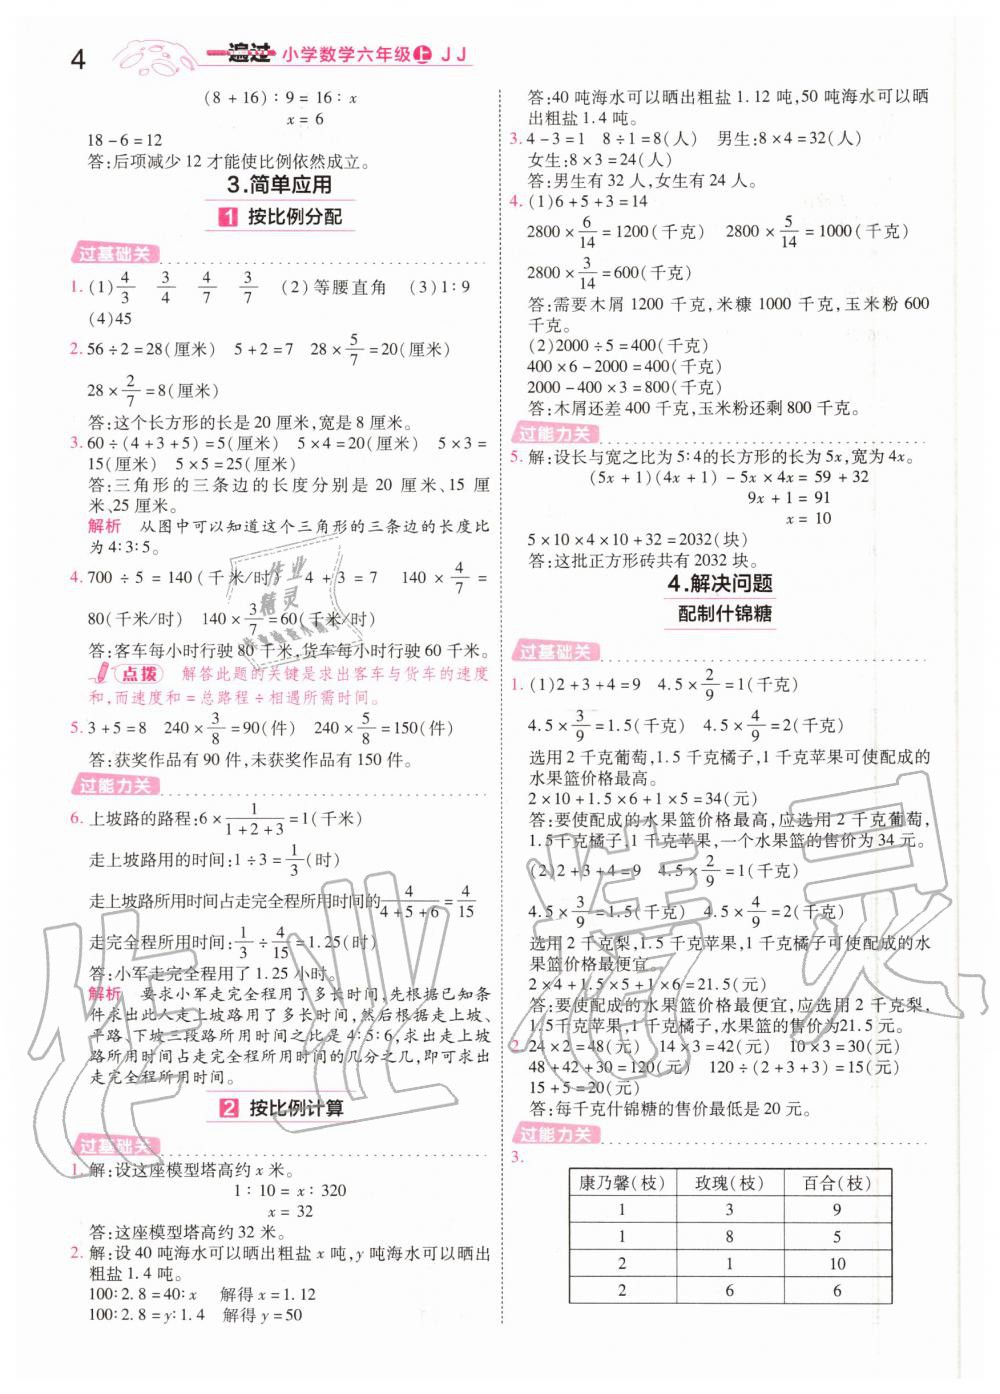 4
一遍过 小学数学六年级上 JJ
(8+16):9=16:x
x=6
18-6=12
答:后项减少12才能使比例依然成立。
3.简单应用
1 按比例分配
过基础关
1.(1)4/3 3/4 4/7 3/7 (2)等腰直角 (3)1:9
(4)45
2.56÷2=28(厘米) 5+2=7 28×5/7=20(厘米)
28×2/7=8(厘米)
答:这个长方形的长是20厘米,宽是8厘米。
3.60÷(4+3+5)=5(厘米) 5×4=20(厘米) 5×3=
15(厘米) 5×5=25(厘米)
答:三角形的三条边的长度分别是20厘米、15厘
米、25厘米。
解析 从图中可以知道这个三角形的三条边的长度比
为4:3:5。
4.700÷5=140(千米/时) 4+3=7 140×4/7=
80(千米/时) 140×3/7=60(千米/时)
答:客车每小时行驶80千米,货车每小时行驶60千米。
点拨 解答此题的关键是求出客车与货车的速度
和,而速度和=总路程÷相遇所需时间。
5.3+5=8 240×3/8=90(件) 240×5/8=150(件)
答:获奖作品有90件,未获奖作品有150件。
过能力关
6.上坡路的路程:6×1/(1+2+3)=1(千米)
走上坡路用的时间:1÷3=1/3(时)
走上坡路所用时间占走完全程所用时间的4/(4+5+6)=4/15
走完全程所用时间:1/3÷4/15=1.25(时)
答:小军走完全程用了1.25小时。
解析 要求小军走完全程用了多长时间,先根据已知条
件求出此人走上坡路用了多长时间,然后根据走上坡、
平路、下坡三段路所用时间之比是4:5:6,求出走上坡
路所用时间占走完全程所用时间的几分之几,即可求出
走完全程所用时间。
2 按比例计算
过基础关
1.解:设这座模型塔高约x米。
1:10=x:320
x=32
答:这座模型塔高约32米。
2.解:设40吨海水可以晒出粗盐x吨,y吨海水可以晒出
粗盐1.4吨。
100:2.8=40:x 解得x=1.12
100:2.8=y:1.4 解得y=50
答:40吨海水可以晒出粗盐1.12吨,50吨海水可以晒
出粗盐1.4吨。
3.4-3=1 8÷1=8(人) 男生:8×4=32(人)
女生:8×3=24(人)
答:男生有32人,女生有24人。
4.(1)6+5+3=14
2800×6/14=1200(千克) 2800×5/14=1000(千克)
2800×3/14=600(千克)
答:需要木屑1200千克,米糠1000千克,玉米粉600
千克。
(2)2000÷5=400(千克)
400×6-2000=400(千克)
2000-400×3=800(千克)
答:木屑还差400千克,玉米粉还剩800千克。
过能力关
5.解:设长与宽之比为5:4的长方形的长为5x,宽为4x。
(5x+1)(4x+1)-5x×4x=59+32
9x+1=91
x=10
5×10×4×10+32=2032(块)
答:这批正方形砖共有2032块。
4.解决问题
配制什锦糖
过基础关
1.(1)2+3+4=9 4.5×2/9=1(千克)
4.5×3/9=1.5(千克) 4.5×4/9=2(千克)
选用2千克葡萄,1.5千克橘子,1千克苹果可使配成的
水果篮价格最高。
2×10+1.5×6+1×5=34(元)
答:要使配成的水果篮价格最高,应选用2千克葡萄,
1.5千克橘子,1千克苹果,一个水果篮的售价为34元。
(2)2+3+4=9 4.5×2/9=1(千克)
4.5×3/9=1.5(千克) 4.5×4/9=2(千克)
选用2千克梨,1.5千克苹果,1千克橘子可使配成的水
果篮价格最便宜。
2×4+1.5×5+1×6=21.5(元)
答:要使配成的水果篮价格最便宜,应选用2千克梨,
1.5千克苹果,1千克橘子,水果篮的售价为21.5元。
2.24×2=48(元) 14×3=42(元) 10×3=30(元)
48+42+30=120(元) 120÷(2+3+3)=15(元)
15+5=20(元)
答:每千克什锦糖的售价最低是20元。
过能力关
3.
康乃馨(枝) 玫瑰(枝) 百合(枝)
1 3 9
1 8 5
2 1 10
2 6 6
作业精灵
作业
精灵